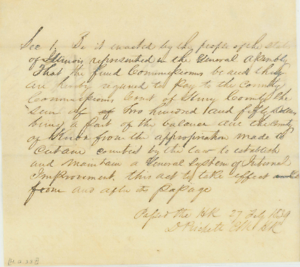 Sec 1 Be it enacted by the people of the State
of Illinois represented in the General Assembly
That the fund Commissioners be and they
are hereby required to pay to the County
Commissioners Court of Henry County the
Sum of Two hundred and fifty Dollars
being a part of the balance due the County
of from the appropriation made to
Certain counties by the law to establish
and maintain a General System of Internal
Improvement, this act to take effect
from and after its passage
Passed the HR 27 Feby 1839
D Prickett Clk HR